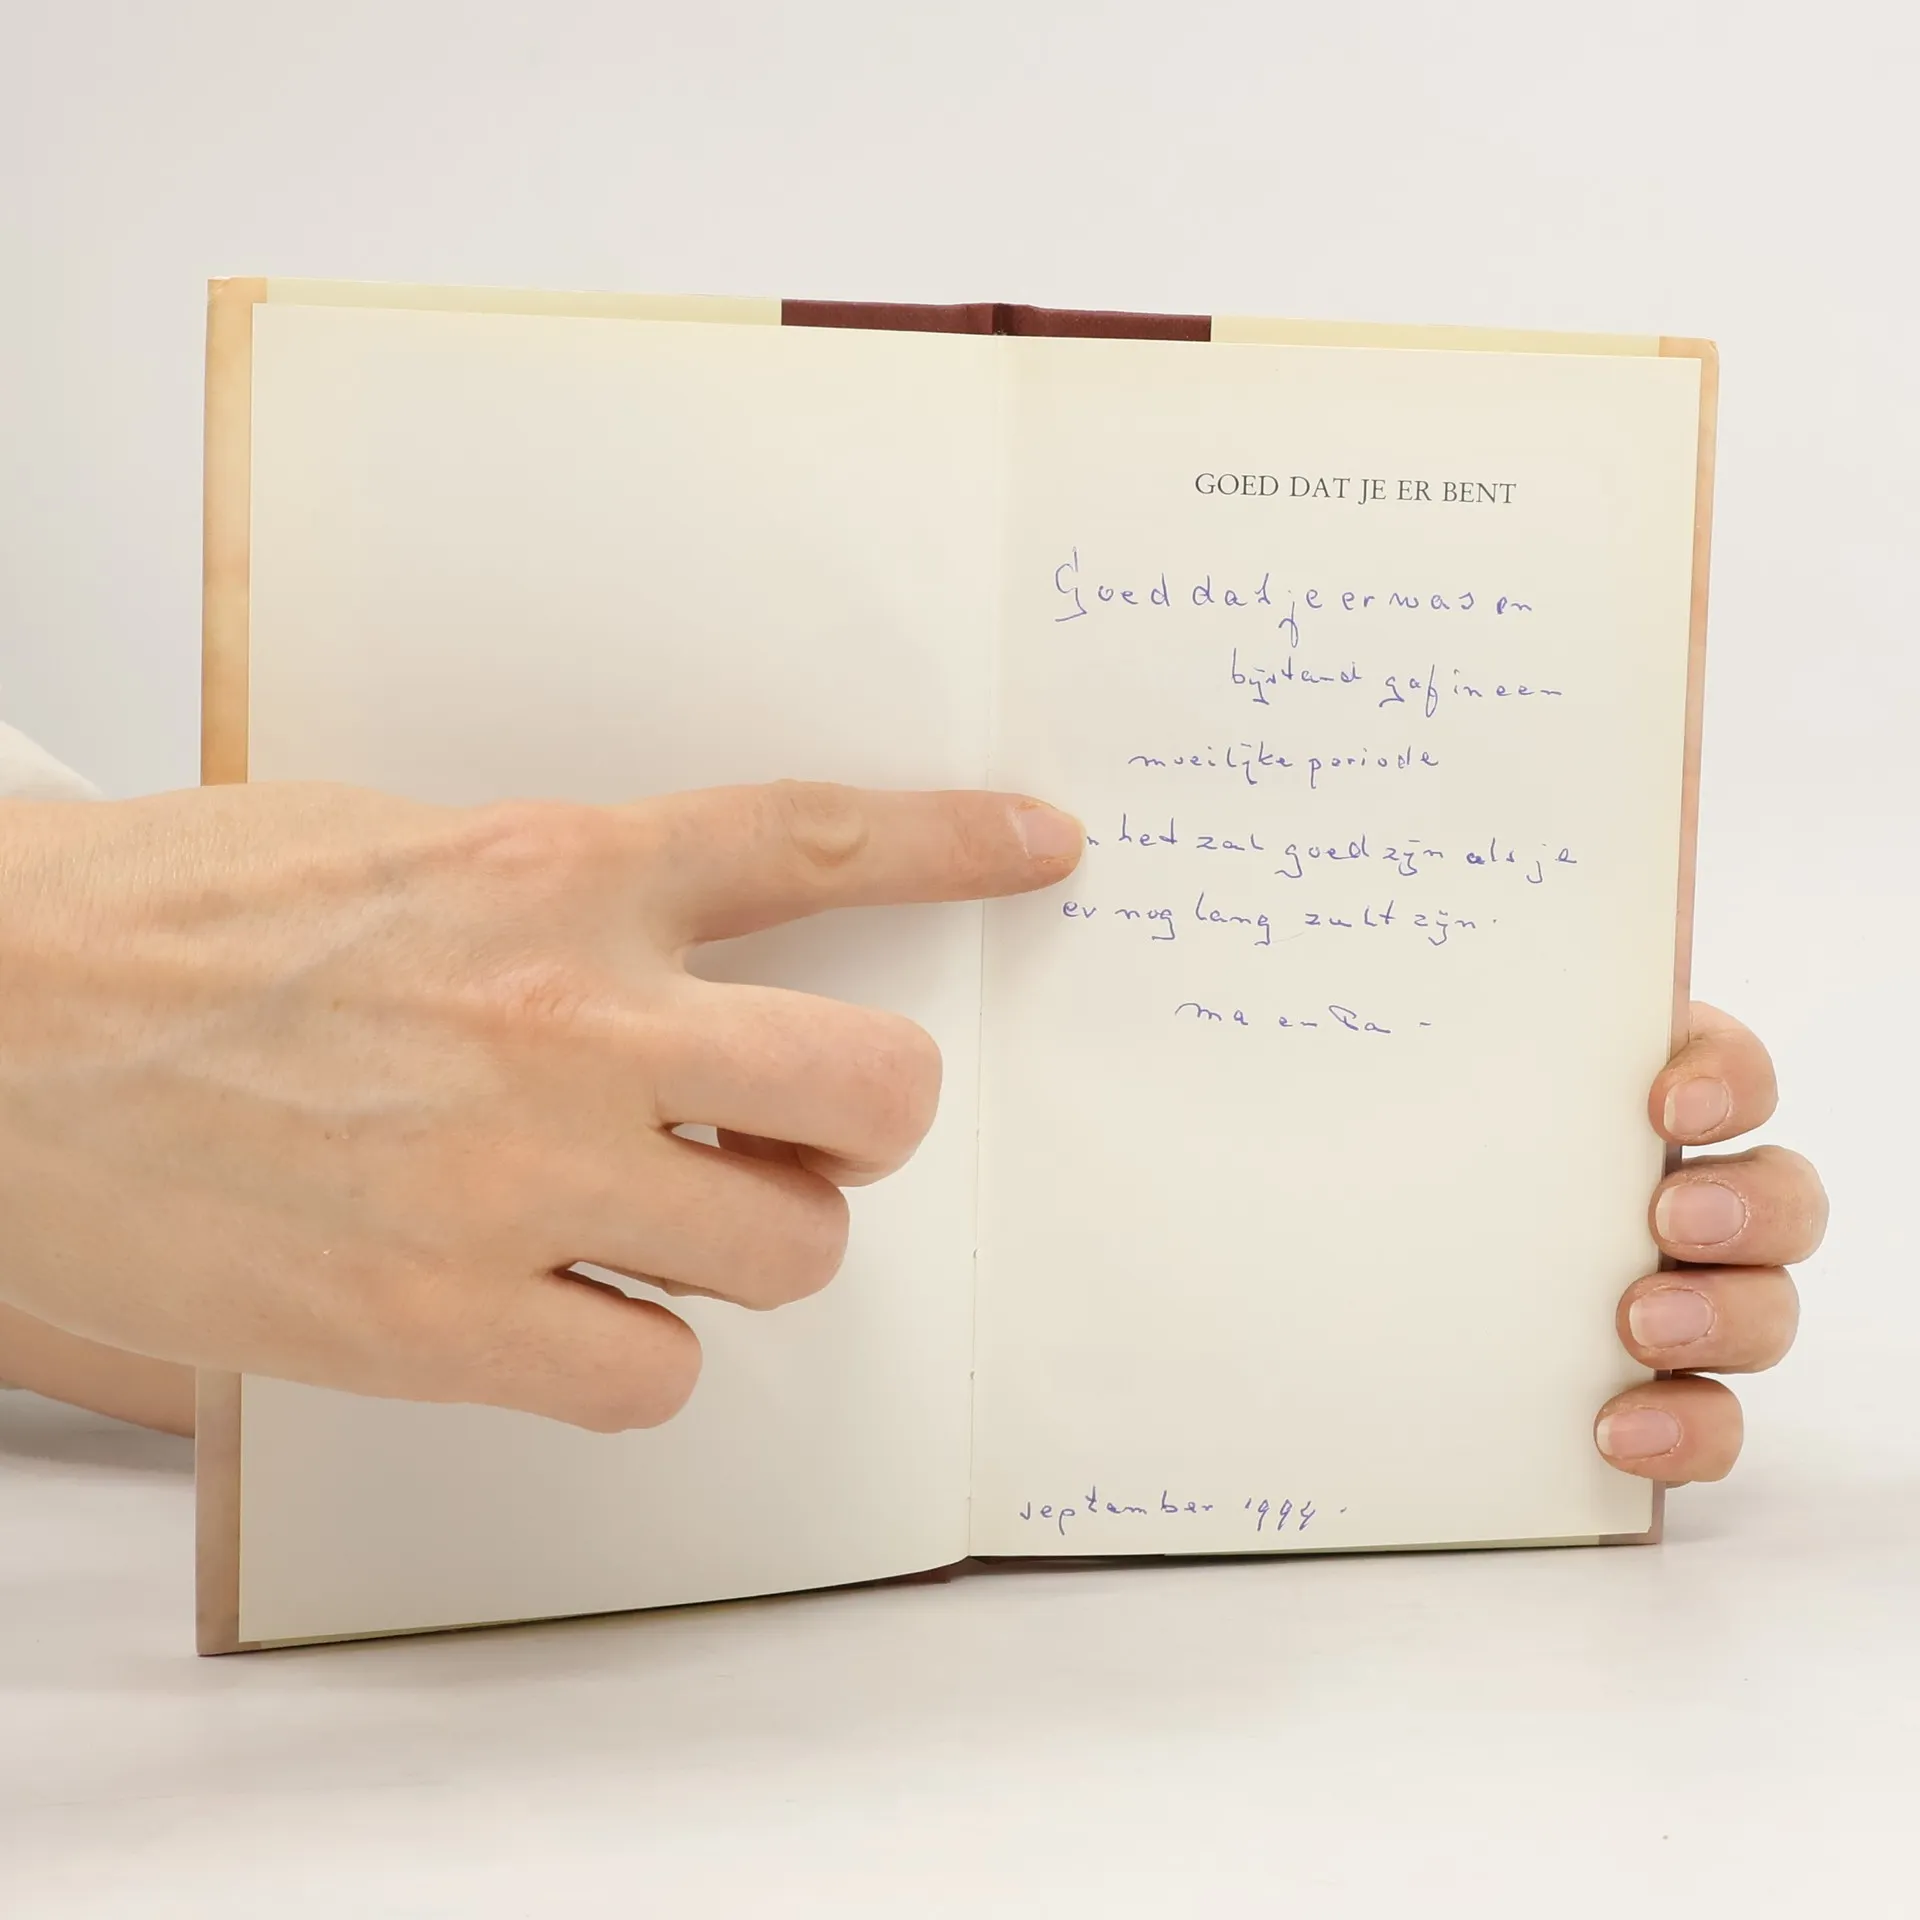 GOED DAT JE ER BENT
Goed dat je er was en
bijstand gaf in een
moeilijke periode
n het zal goed zijn als je
er nog lang zult zijn.
ma en Pa -
september 1994.